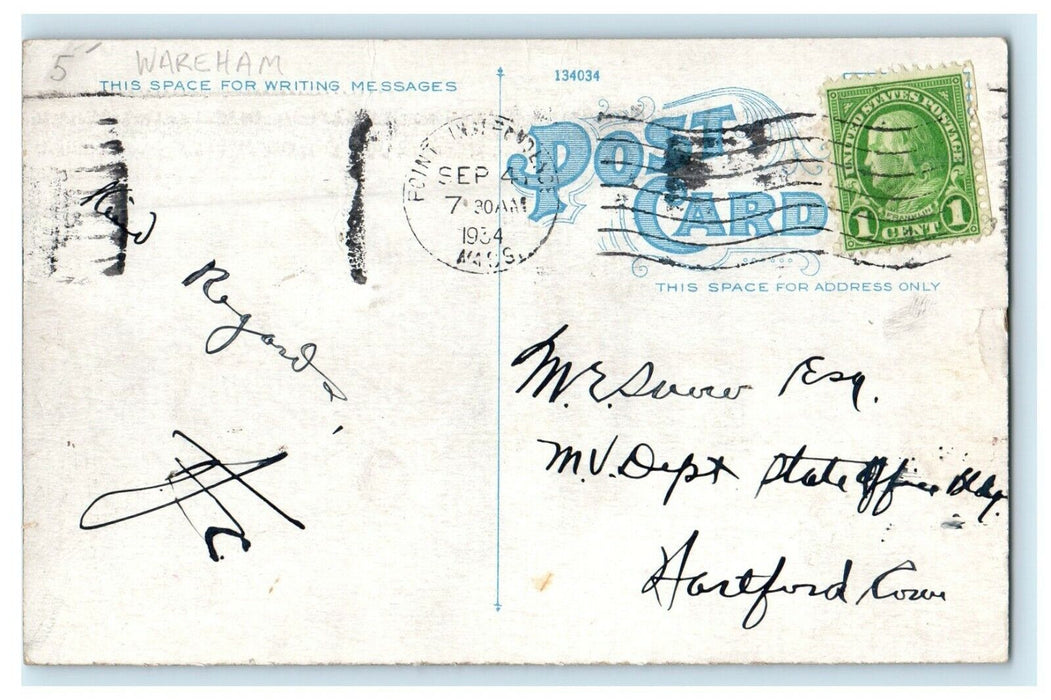 5
WAREHAM
THIS SPACE FOR WRITING MESSAGES
Kind
Regards,
134034
POST
CARD
SEP 4
7 30AM
1934
MASS.
UNITED STATES POSTAGE
FRANKLIN
1 CENT 1
THIS SPACE FOR ADDRESS ONLY
M. E. Snow Esq.
M.V. Dept State Office Bldg.
Hartford Conn